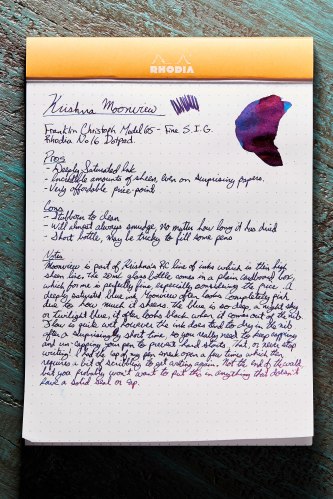 RHODIA
Krishna Moonview
Franklin Christoph Model 65 - Fine S.I.G.
Rhodia No 16 Dotpad.
Pros
- Deeply Saturated Ink
- Incredible amounts of sheen, even on surprising papers.
- Very affordable price-point
Cons
- Stubborn to clean
- Will almost always smudge, no matter how long it has dried
- Short bottle, may be tricky to fill some pens
Notes
Moonview is part of Krishna's RC line of inks which is their high
sheen line. The 20ml glass bottle comes in a plain cardboard box,
which for me is perfectly fine, especially considering the price. A
deeply saturated blue ink, Moonview often looks completely pink
due to how much it sheens. The blue is so deep, a night sky
or twilight blue, it often looks black when it comes out of the nib.
Flow is quite wet, however the ink does tend to dry in the nib
after a surprisingly short time, so you really need to keep capping
and un-capping your pen to prevent hard starts. That, or never stop
writing! I had the cap of my pen sneak open a few times which then
requires a bit of scribbling to get writing again. Not the end of the world,
but you probably won't want to put this in anything that doesn't
have a solid seal or cap.